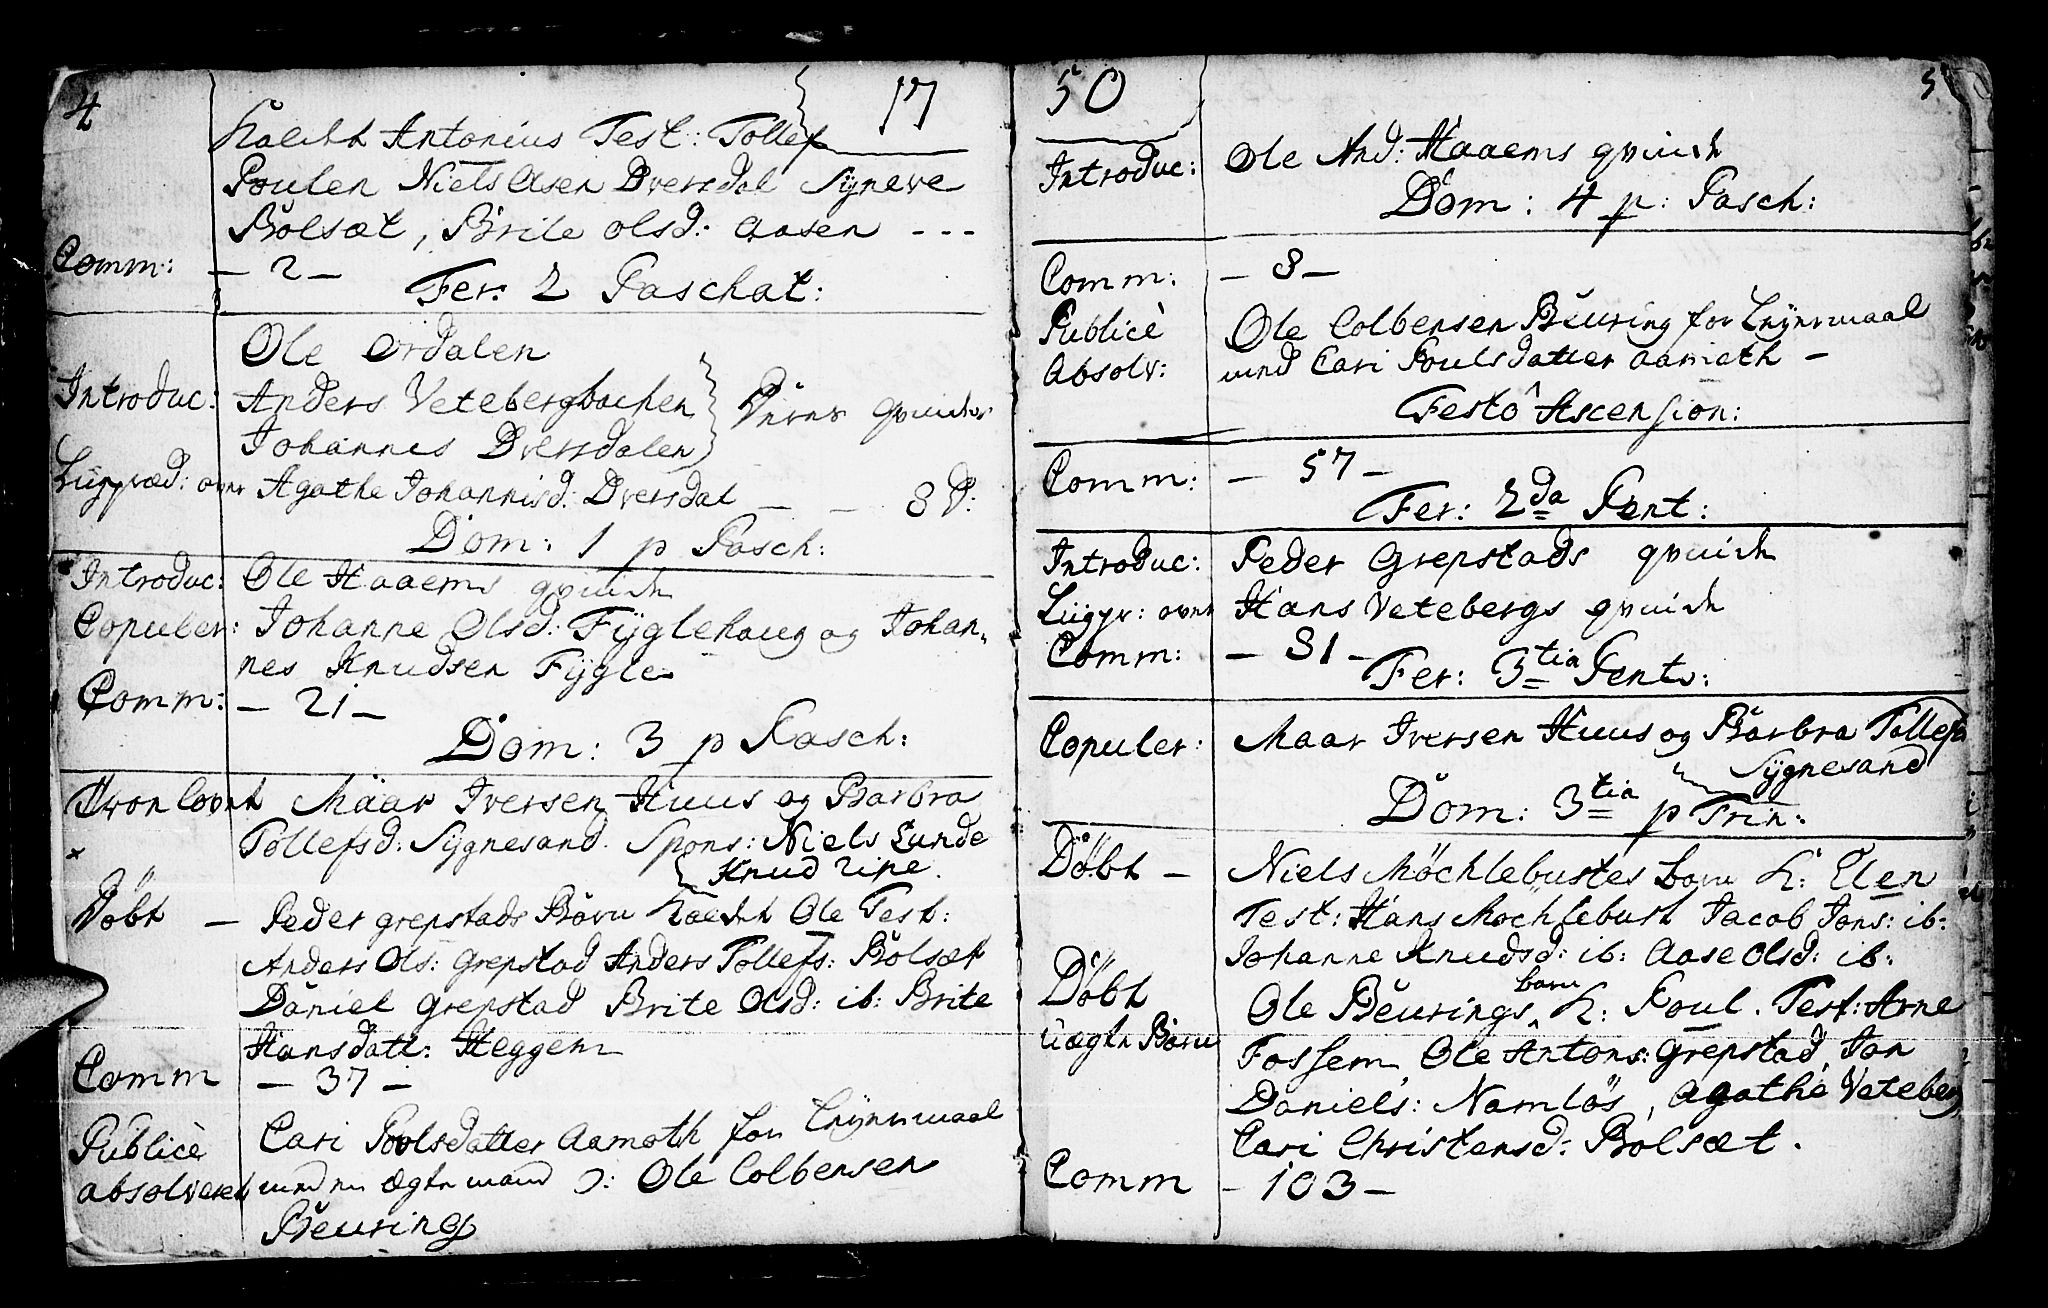 4
17
kaldet Antonius Test: Tollef
Poulsen Niels Aasen Dversdal Syneve
Bolsæt, Brite Olsd: Aasen ---
Comm: - 2 -
Fer: 2 Paschat:
Ole Ørdalen
Introduc: Anders Vetebergbachen
Johannes Dversdalen
Deres qvinder
Liigpræd: over Agathe Johannisd: Dversdal - - 8 d:
Dom: 1 p Pasch:
Introduc: Ole Haaems qvinde
Copuler: Johanne Olsd: Fyglehoug og Johan-
nes Knudsen Fygle
Comm: - 21 -
Dom: 3 p Pasch:
Trolovet Maar Iversen Huus og Barbra
Tollefsd: Sygnesand. Spons: Niels Lunde
Knud ripe.
Døbt - Peder grepstads Børn kaldet Ole Test:
Anders Ols: grepstad Anders Tollefs: Bolsæt
Daniel grepstad Brite Olsd: ib: Brite
Hansdatt: Heggem
Comm - 37 -
Publicè Cari Povlsdatter Aamoth for Leyermaal
absolveret med en ægte mand ɔ: Ole Colbensen
Beuring
50
5
Introduc: Ole And: Haaems qvinde
Dom: 4 p: Pasch:
Comm: - 8 -
Publicè Ole Colbensen Beuring for Leyermaal
Absolv: med Cari Poulsdatter Aamoth -
Festo Ascension:
Comm: - 57 -
Fer: 2da Pent:
Introduc: Peder Grepstads qvinde
Liigpr: over Hans Vetebergs qvinde
Comm: - 81 -
Fer: 3tia Pent:
Copuler: Maar Iversen Huus og Barbra Tollefsd
Sygnesand
Dom: 3tia p Trin:
Døbt - Niels Möchlebustes barn k: Elen
Test: Hans Mochlebust Jacob Jons: ib:
Johanne Knudsd: ib: Aase Olsd: ib:
Døbt Ole Beurings barn k: Poul. Test: Arne
uægte Barn Fossem, Ole Antons: Grepstad, Jon
Daniels: Namløs, Agathe Veteberg
Cari Christensd: Bolsæt.
Comm - 103 -